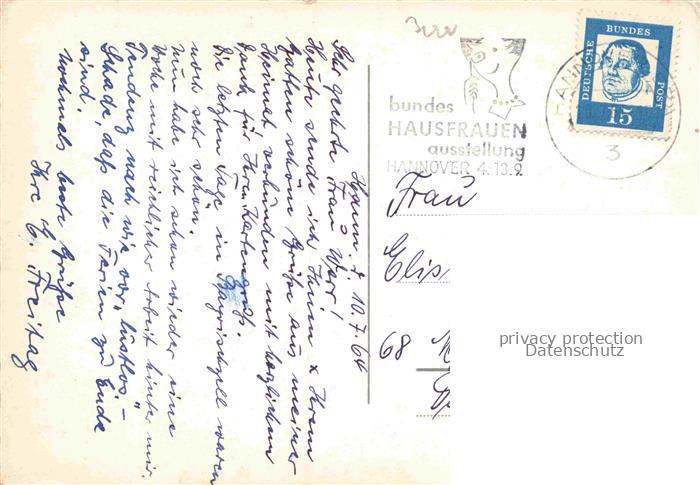 Hann., 10.7.64
Sehr geehrte Frau Werr!
Heute sende ich Ihnen u. Ihrem
Gatten schöne Grüße aus meiner
Heimat verbunden mit herzlichem
Dank für Ihren Kartengruß.
Die letzten Tage in Bayrischzell waren
noch sehr schön.
Nun habe ich schon wieder eine
Woche mit reichlicher Arbeit hinter mir.
Tendenz nach wie vor „lustlos". –
Schade, daß die Ferien zu Ende
sind.
Nochmals beste Grüße
Ihre E. Freitag
bundes
HAUSFRAUEN
ausstellung
HANNOVER 4.-13.9
HANN
3
DEUTSCHE
BUNDES
POST
15
Frau
Elis
68 M
privacy protection
Datenschutz